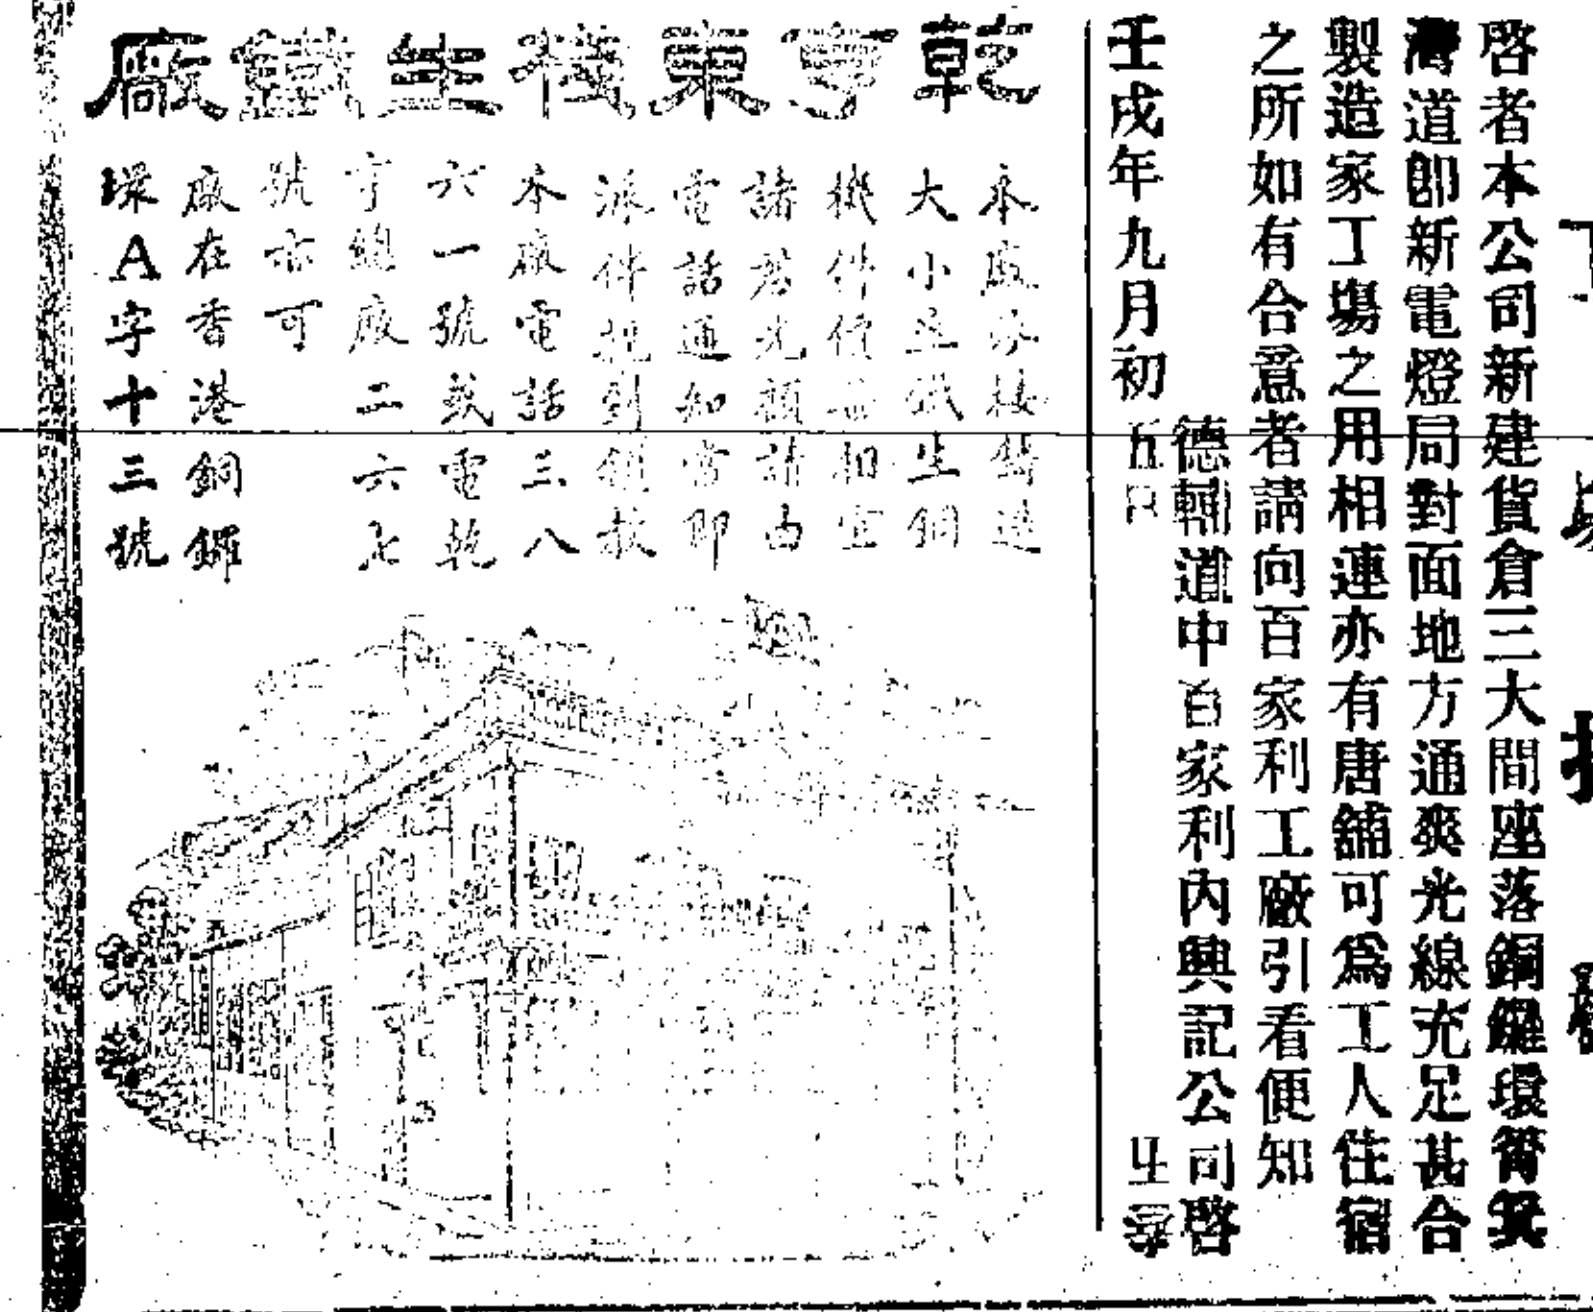 啓者本公司新建貨倉三大間座落銅鑼環筲箕
灣道卽新電燈局對面地方通爽光線充足甚合
製造家工塲之用相連亦有唐舖可爲工人住宿
之所如有合意者請向百家利工廠引看便知
德輔道中百家利內興記公司啓
壬戌年九月初五日
乾亨東棧生鐵廠
本廠分棧鑄造
大小生鐵生銅
機件價亦相宜
諸君光顧請由
電話通知當即
派件把到領教
本廠電話三八
六一號或電乾
亨總廠二六七
號亦可
廠在香港銅鑼
環A字十三號